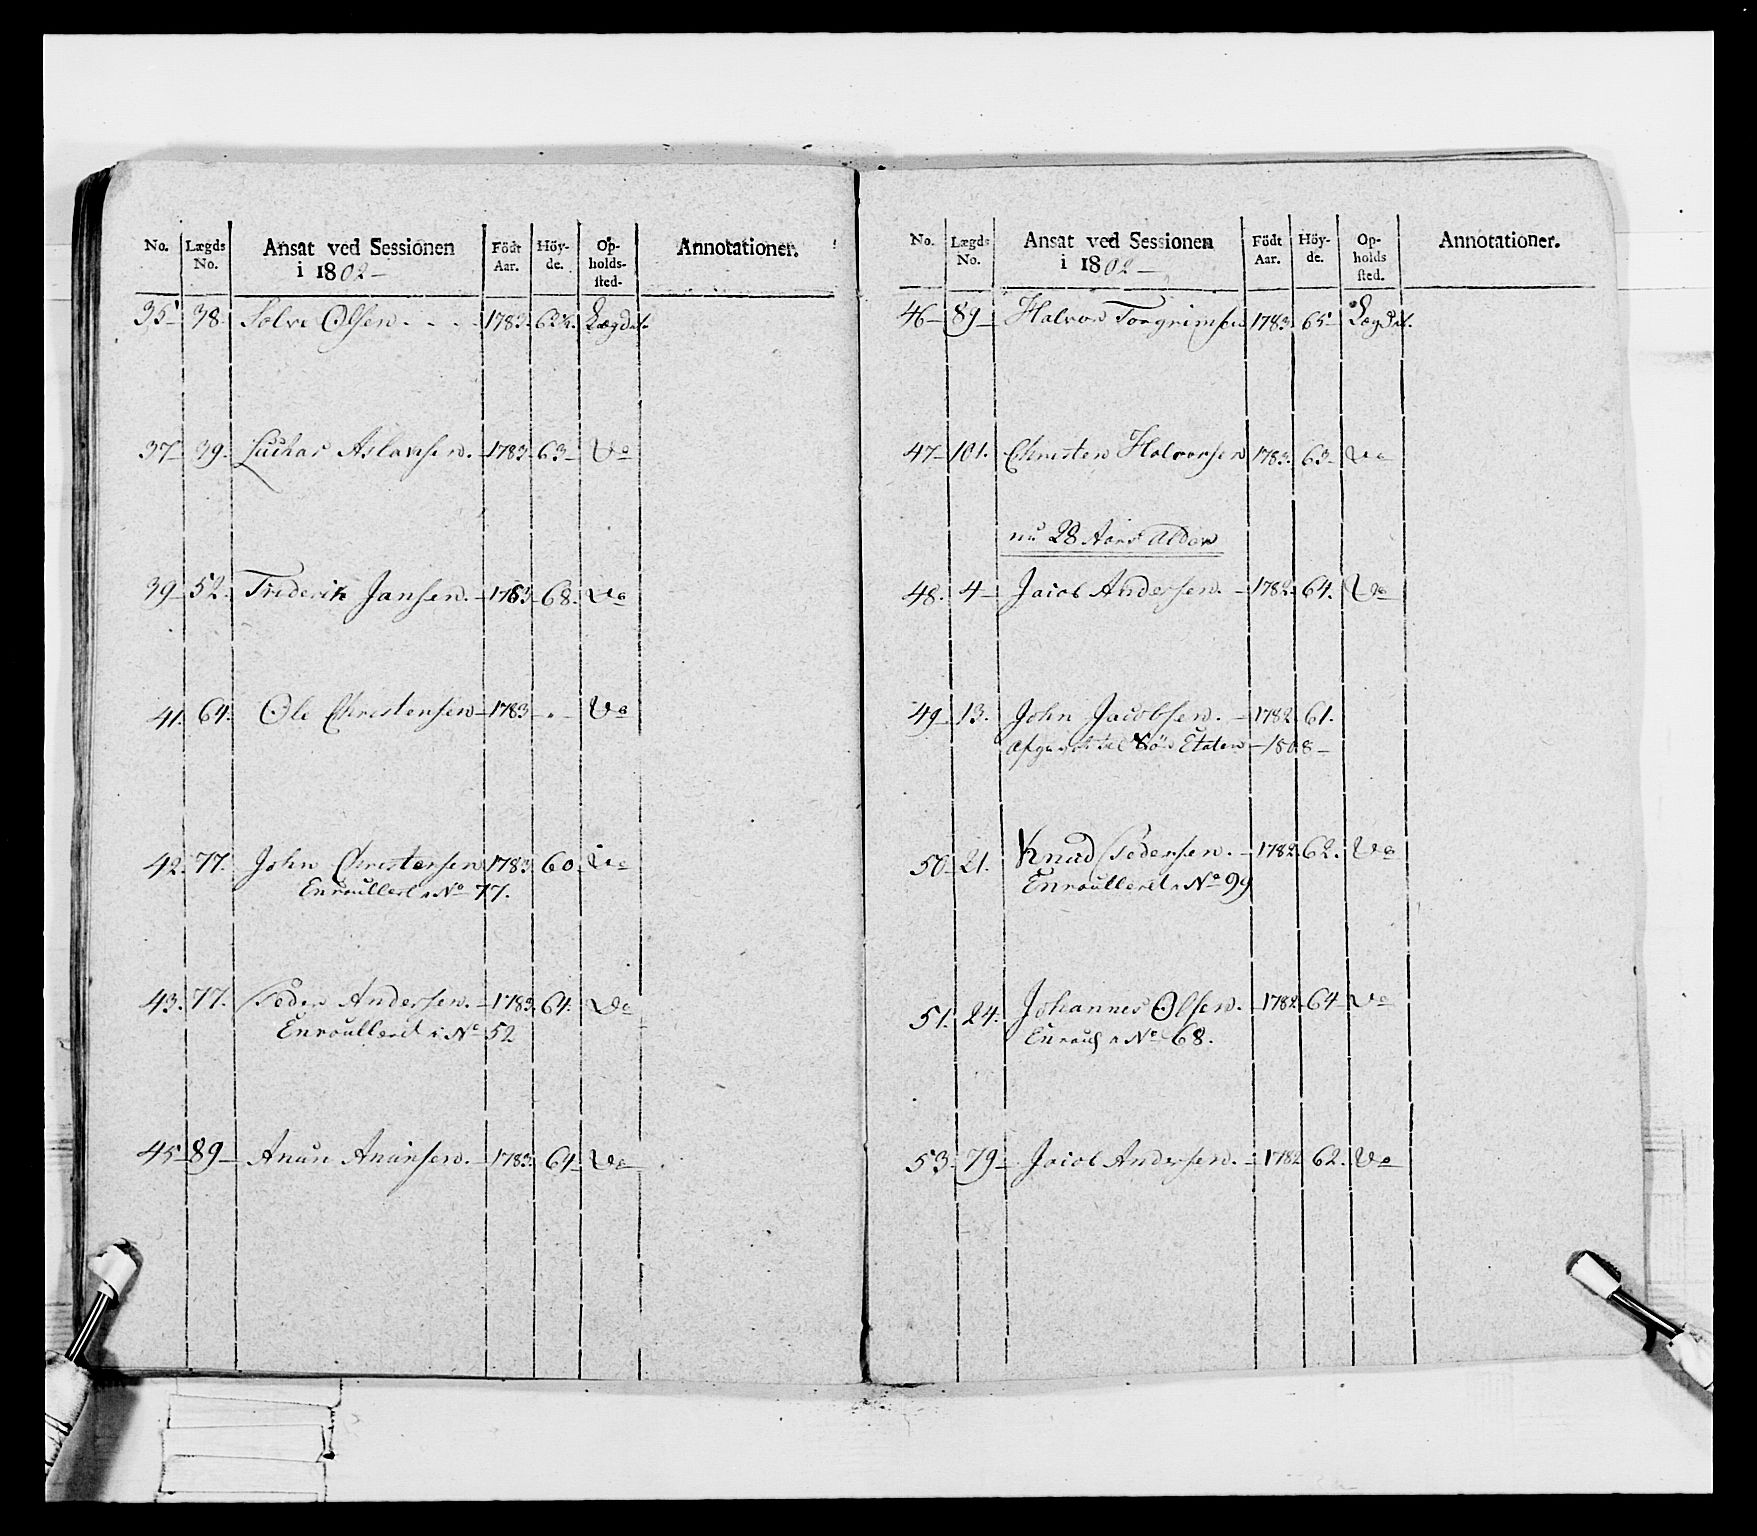 No. Lægds No. Ansat ved Sessionen i 1802 – Födt Aar. Höyde. Opholdssted. Annotationer.
35 – 38. Solve Olsen . . . . 1783. 62½. Lægdet.
37 – 39. Luchas Aslaksen. – 1783. 63 – Do
39 – 52. Friderik Jansen. – 1783. 68. Do
41. 64. Ole Christensen – 1783 – " – Do
42. 77. John Christensen 1783. 60. Do
Enroulleret i No 77.
43. 77. Peder Andersen. – 1783. 64. Do
Enroulleret i No 52
45 – 89 – Anun Anunsen. – 1783. 64 – Do
No. Lægds No. Ansat ved Sessionen i 1802 – Födt Aar. Höyde. Opholds sted. Annotationer.
46 – 89 – Halvor Torgrimsen 1783. 65 – Lægdet.
47 – 101. Christen Halvorsen 1783. 63 – Do
nu 28 Aars Alder
48. 4 – Jacob Andersen. – 1782. 64. Do
49 – 13. John Jacobsen. – 1782. 61.
Afgivet til Söe Etaten – 1808 –
50 – 21. Knud Pedersen. – 1782. 62. Do
Enroulleret i No 99
51. 24. Johannes Olsen. – 1782. 64 – Do
Enroul i No 68.
53. 79 – Jacob Andersen. – 1782 62. Do